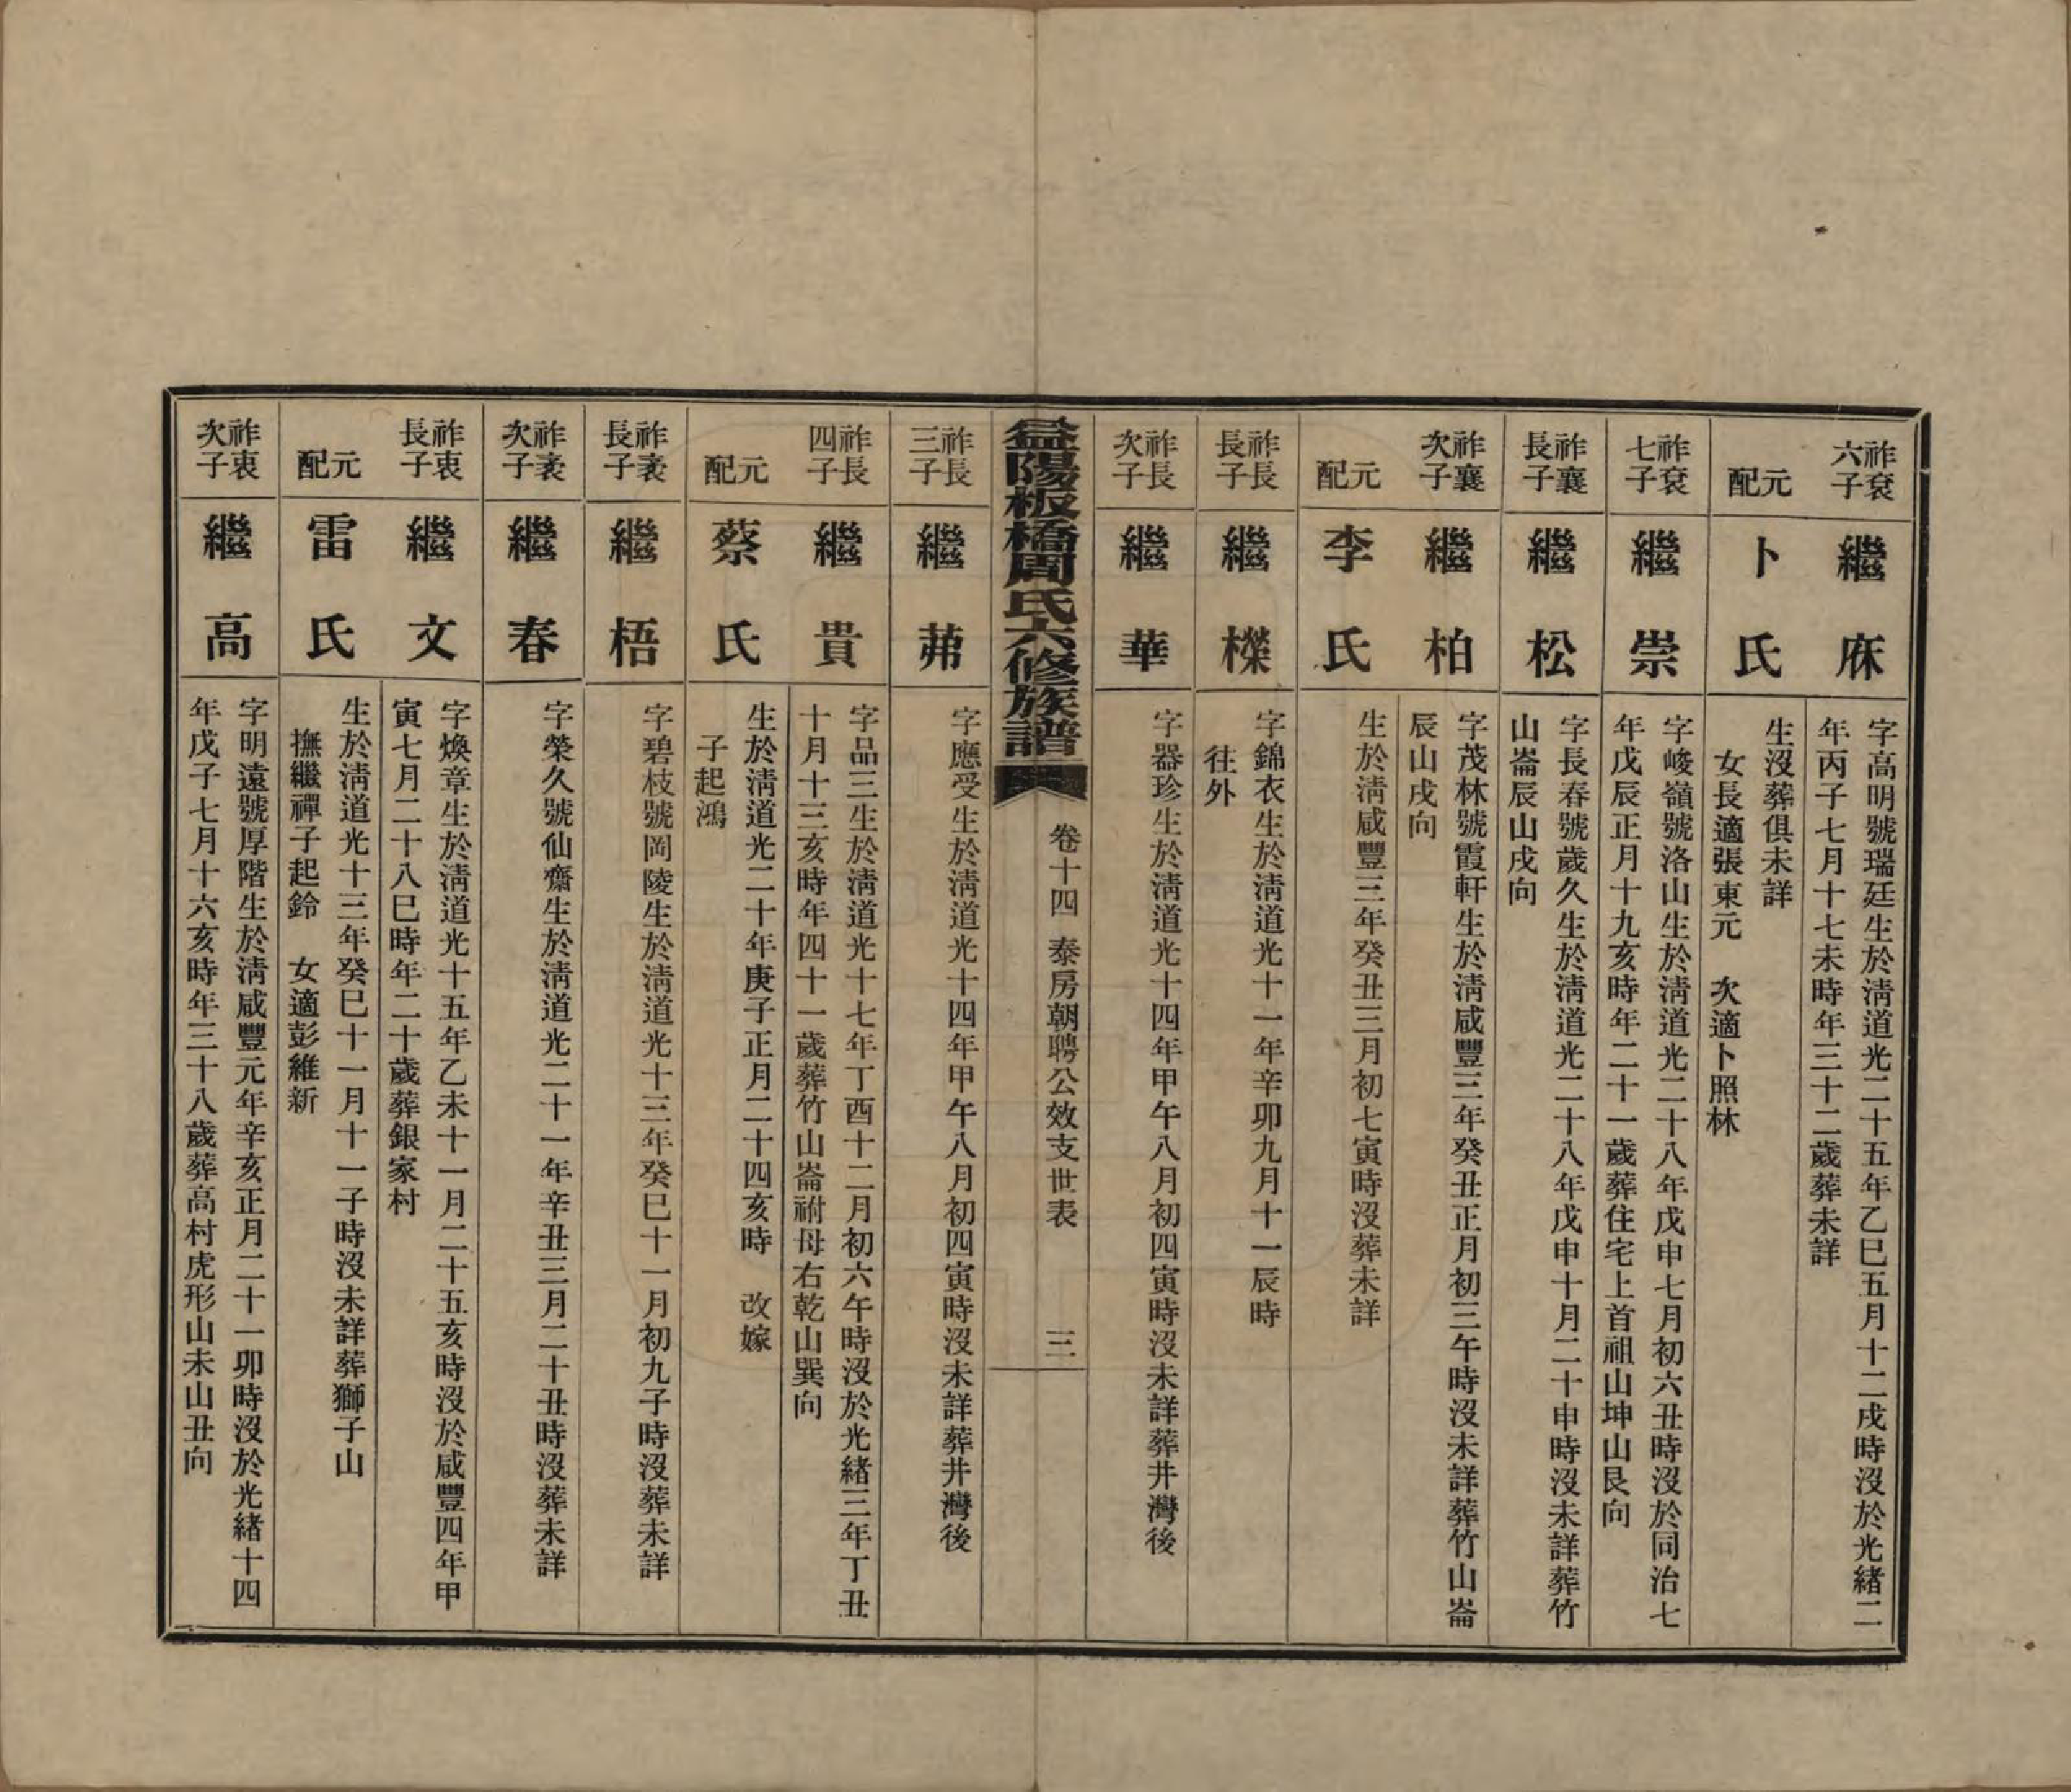 祚袞
六子
繼庥
字高明號瑞廷生於淸道光二十五年乙巳五月十二戌時沒於光緒二
年丙子七月十七未時年三十二歲葬未詳
元配
卜氏
生沒葬俱未詳
女長適張東元　次適卜照林
祚袞
七子
繼崇
字峻嶺號洛山生於淸道光二十八年戊申七月初六丑時沒於同治七
年戊辰正月十九亥時年二十一歲葬住宅上首祖山坤山艮向
祚襄
長子
繼松
字長春號歲久生於淸道光二十八年戊申十月二十申時沒未詳葬竹
山崙辰山戌向
祚襄
次子
繼柏
字茂林號霞軒生於淸咸豐三年癸丑正月初三午時沒未詳葬竹山崙
辰山戌向
元配
李氏
生於淸咸豐三年癸丑三月初七寅時沒葬未詳
祚長
長子
繼檪
字錦衣生於淸道光十一年辛卯九月十一辰時
往外
祚長
次子
繼華
字器珍生於淸道光十四年甲午八月初四寅時沒未詳葬井灣後
益陽板橋周氏六修族譜
卷十四　泰房朝聘公效支世表　三
祚長
三子
繼茀
字應受生於淸道光十四年甲午八月初四寅時沒未詳葬井灣後
祚長
四子
繼貴
字品三生於淸道光十七年丁酉十二月初六午時沒於光緒三年丁丑
十月十三亥時年四十一歲葬竹山崙祔母右乾山巽向
元配
蔡氏
生於淸道光二十年庚子正月二十四亥時　改嫁
子起鴻
祚袤
長子
繼梧
字碧枝號岡陵生於淸道光十三年癸巳十一月初九子時沒葬未詳
祚袤
次子
繼春
字榮久號仙齋生於淸道光二十一年辛丑三月二十丑時沒葬未詳
祚衷
長子
繼文
字煥章生於淸道光十五年乙未十一月二十五亥時沒於咸豐四年甲
寅七月二十八巳時年二十歲葬銀家村
元配
雷氏
生於淸道光十三年癸巳十一月十一子時沒未詳葬獅子山
撫繼禪子起鈴　女適彭維新
祚衷
次子
繼高
字明遠號厚階生於淸咸豐元年辛亥正月二十一卯時沒於光緒十四
年戊子七月十六亥時年三十八歲葬高村虎形山未山丑向